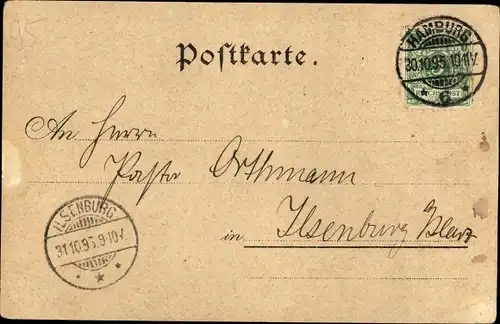 95
HAMBURG
30.10.95.10-11V.
* 6 *
Postkarte.
An Herrn
Pastor Orthmann
in Ilsenburg a/Harz
ILSENBURG
31.10.95.9-10V.